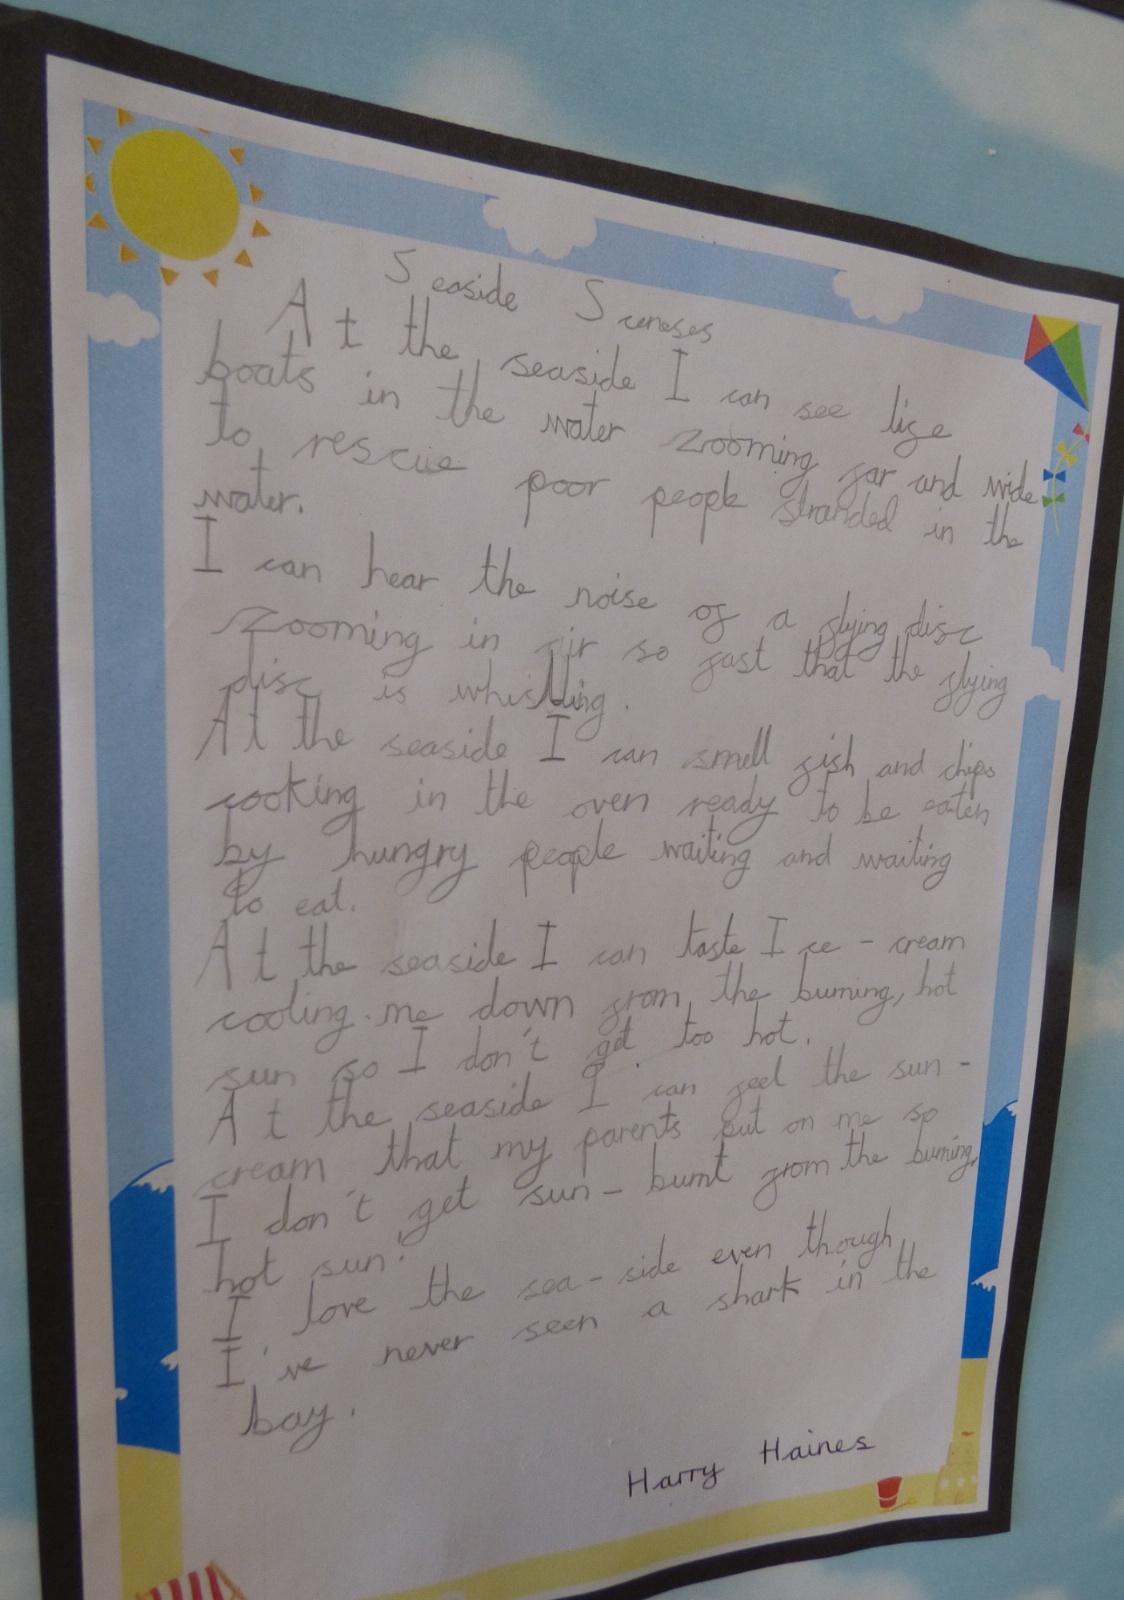 Seaside Sceneses
At the seaside I can see life
boats in the water zooming far and wide
to rescue poor people stranded in the
water.
I can hear the noise of a flying disc
zooming in air so fast that the flying
disc is whistling.
At the seaside I can smell fish and chips
cooking in the oven ready to be eaten
by hungry people waiting and waiting
to eat.
At the seaside I can taste Ice-cream
cooling me down from the burning, hot
sun so I don't get too hot.
At the seaside I can feel the sun-
cream that my parents put on me so
I don't get sun-burnt from the burning,
hot sun.
I love the sea-side even though
I've never seen a shark in the
bay.
Harry Haines